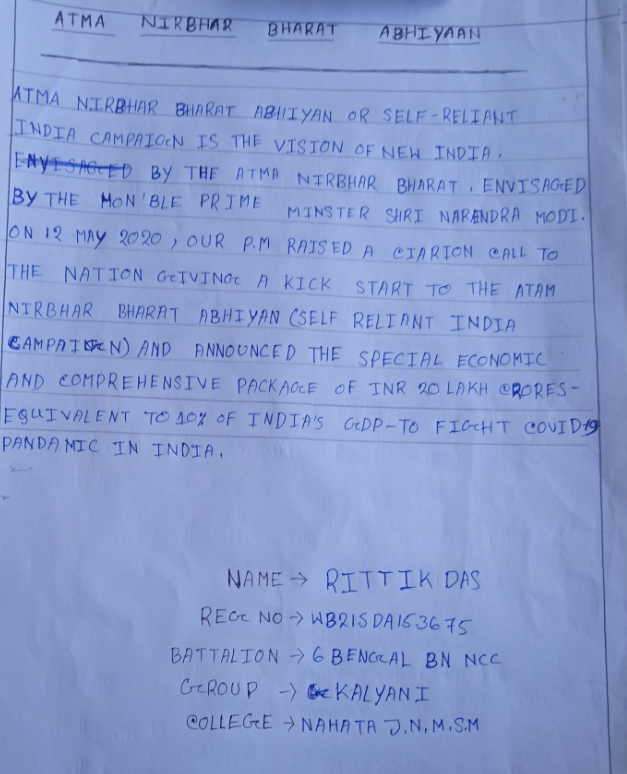 ATMA NIRBHAR BHARAT ABHIYAAN
ATMA NIRBHAR BHARAT ABHIYAN OR SELF-RELIANT
INDIA CAMPAIGN IS THE VISION OF NEW INDIA.
ENVISAGED BY THE ATMA NIRBHAR BHARAT. ENVISAGED
BY THE HON'BLE PRIME MINSTER SHRI NARANDRA MODI.
ON 12 MAY 2020, OUR P.M RAISED A CIARION CALL TO
THE NATION GIVING A KICK START TO THE ATAM
NIRBHAR BHARAT ABHIYAN (SELF RELIANT INDIA
CAMPAIGN) AND ANNOUNCED THE SPECIAL ECONOMIC
AND COMPREHENSIVE PACKAGE OF INR 20 LAKH CRORES-
EQUIVALENT TO 10% OF INDIA'S GDP-TO FIGHT COVID-19
PANDAMIC IN INDIA.
NAME → RITTIK DAS
REG NO → WB21SDA153675
BATTALION → 6 BENGAL BN NCC
GROUP → KALYANI
COLLEGE → NAHATA J.N.M.S.M